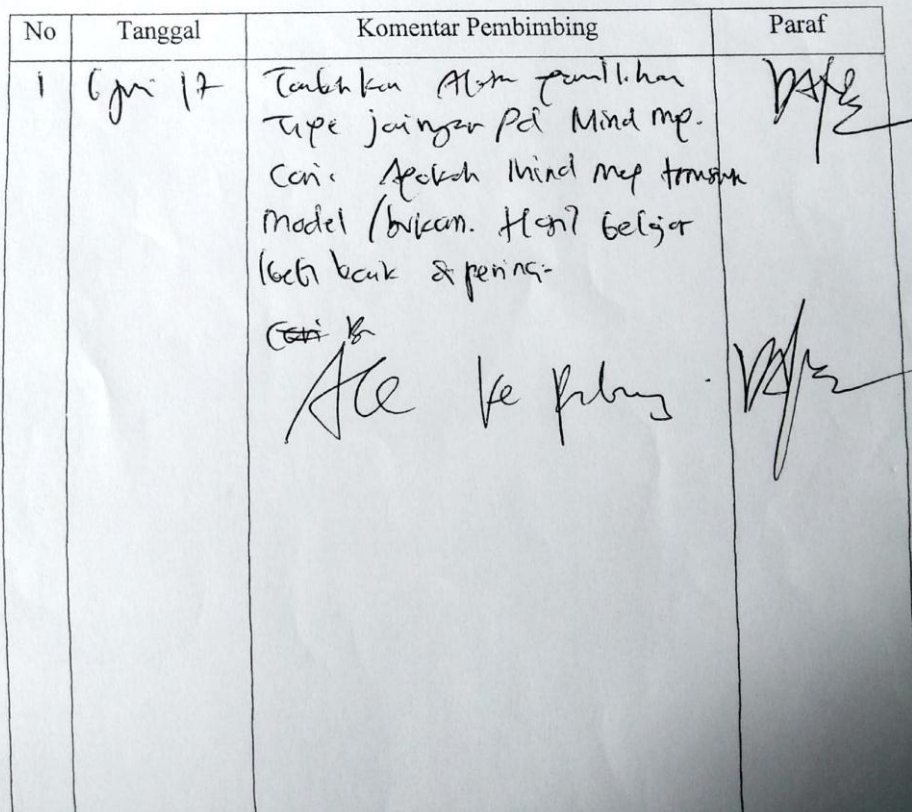 No Tanggal Komentar Pembimbing Paraf
1 6 Juni 17 Tambahkan Alasan pemilihan
Tipe jaringan pd Mind map.
Cari. Apakah Mind map termasuk
Model /bukan. Hasil belajar
lebih baik &
ACC ke